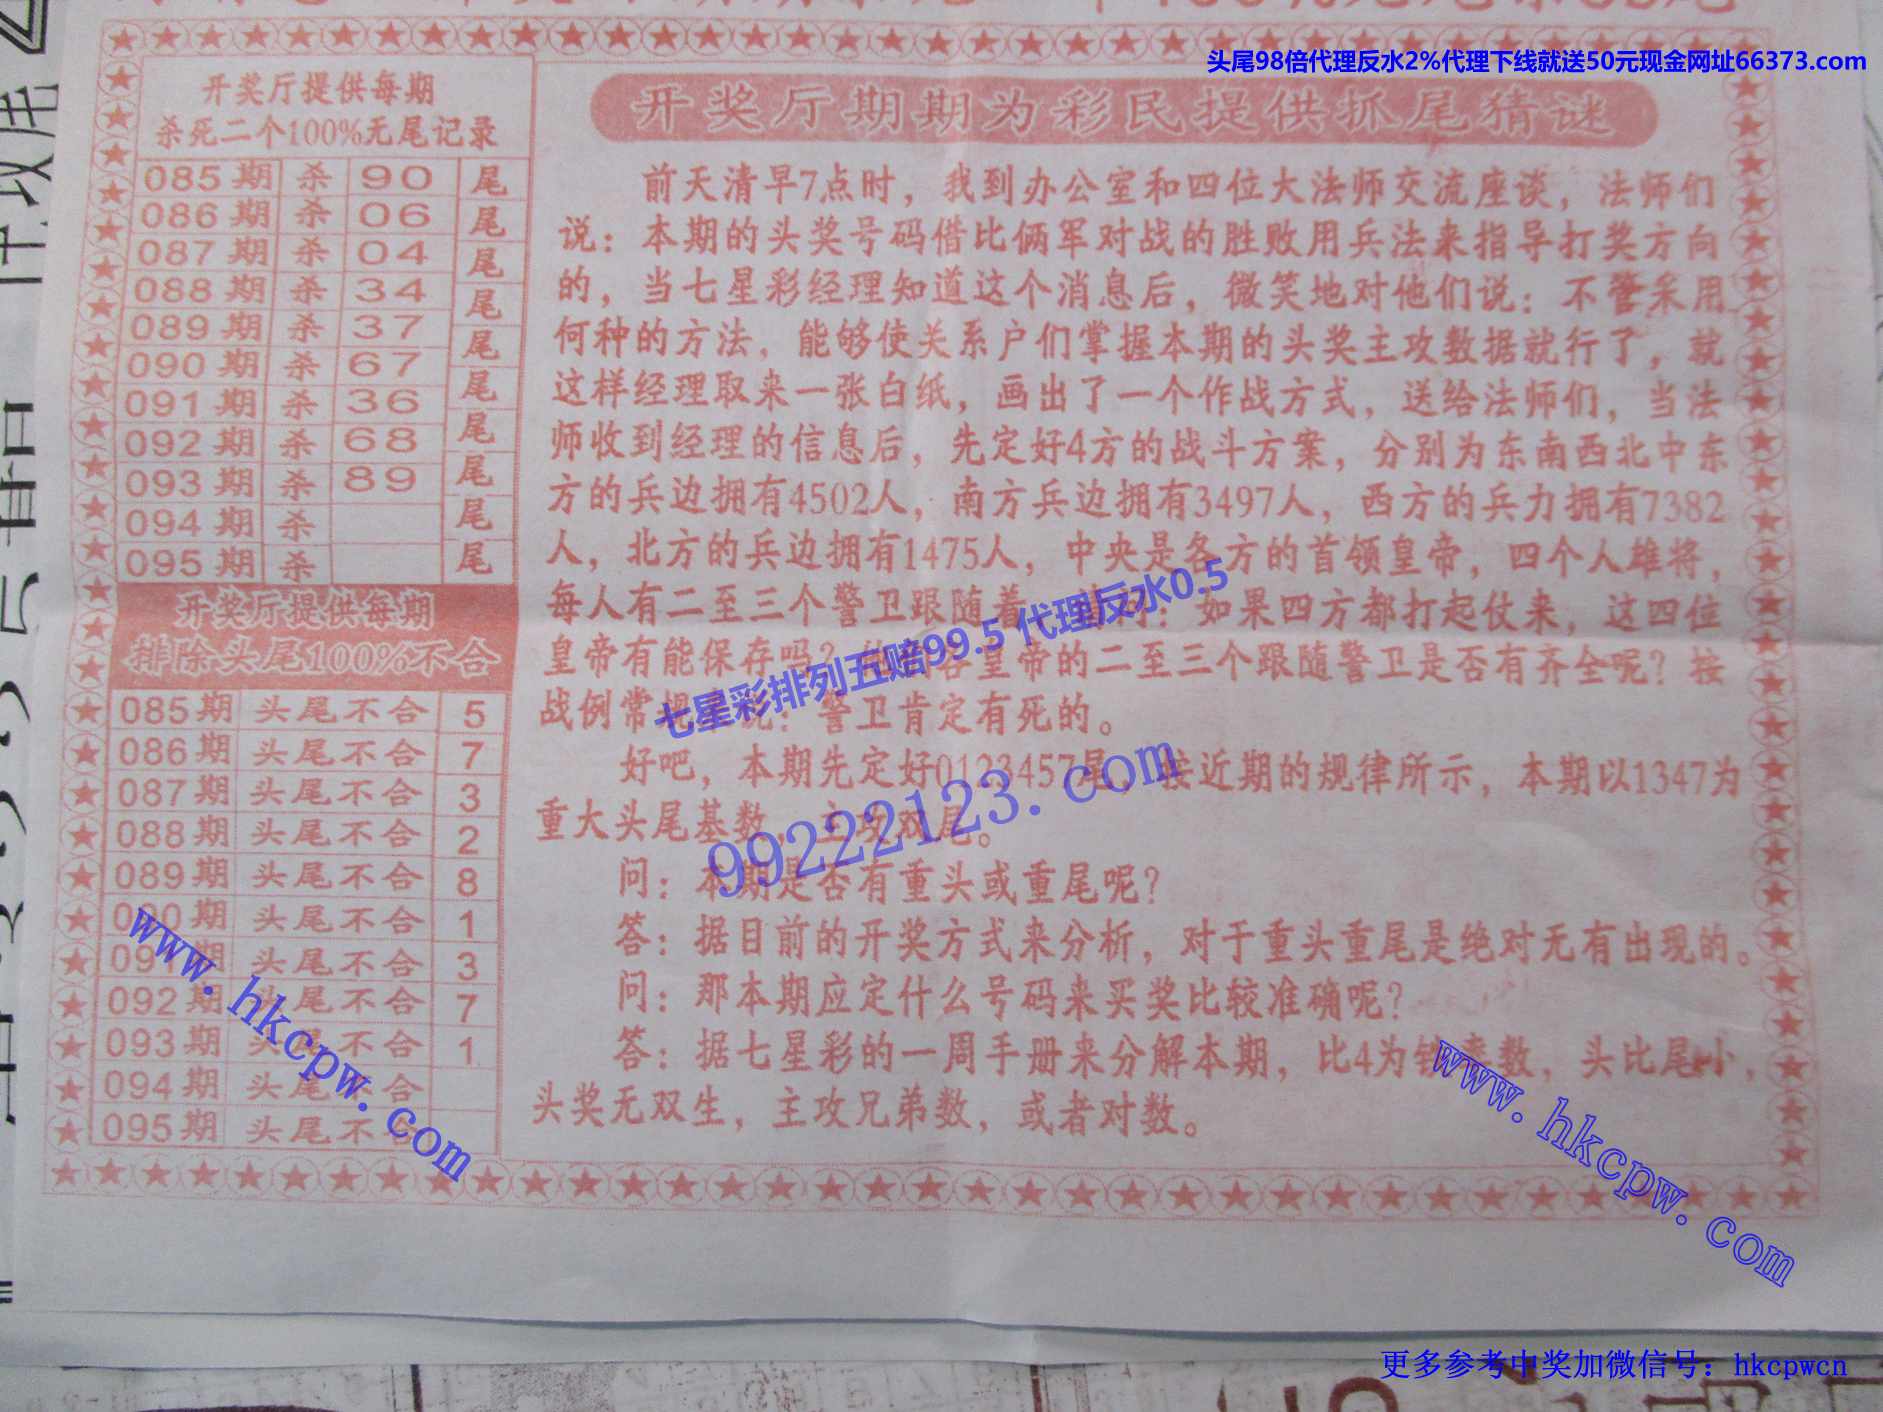 头尾98倍代理反水2%代理下线就送50元现金网址66373.com
开奖厅提供每期
杀死二个100%无尾记录
085期 杀 90 尾
086期 杀 06 尾
087期 杀 04 尾
088期 杀 34 尾
089期 杀 37 尾
090期 杀 67 尾
091期 杀 36 尾
092期 杀 68 尾
093期 杀 89 尾
094期 杀 尾
095期 杀 尾
开奖厅提供每期
排除头尾100%不合
085期 头尾不合 5
086期 头尾不合 7
087期 头尾不合 3
088期 头尾不合 2
089期 头尾不合 8
090期 头尾不合 1
09 头尾不合 3
092期 头尾不合 7
093期 头尾不合 1
094期 头尾不合
095期 头尾不
开奖厅期期为彩民提供抓尾猜谜
前天清早7点时，我到办公室和四位大法师交流座谈，法师们
说：本期的头奖号码借比俩军对战的胜败用兵法来指导打奖方向
的，当七星彩经理知道这个消息后，微笑地对他们说：不管采用
何种的方法，能够使关系户们掌握本期的头奖主攻数据就行了，就
这样经理取来一张白纸，画出了一个作战方式，送给法师们，当法
师收到经理的信息后，先定好4方的战斗方案，分别为东南西北中东
方的兵边拥有4502人，南方兵边拥有3497人，西方的兵力拥有7382
人，北方的兵边拥有1475人，中央是各方的首领皇帝，四个人雄将，
每人有二至三个警卫跟随着 ：如果四方都打起仗来，这四位
皇帝有能保存吗？ 各皇帝的二至三个跟随警卫是否有齐全呢？按
战例常规 说：警卫肯定有死的。
好吧，本期先定好0123457星，按近期的规律所示，本期以1347为
重大头尾基数，主攻双尾。
问：本期是否有重头或重尾呢？
答：据目前的开奖方式来分析，对于重头重尾是绝对无有出现的。
问：那本期应定什么号码来买奖比较准确呢？
答：据七星彩的一周手册来分解本期，比4为 数，头比尾小，
头奖无双生，主攻兄弟数，或者对数。
七星彩排列五赔99.5 代理反水0.5
99222123.com
www.hkcpw.com
www.hkcpw.com
更多参考中奖加微信号：hkcpwcn